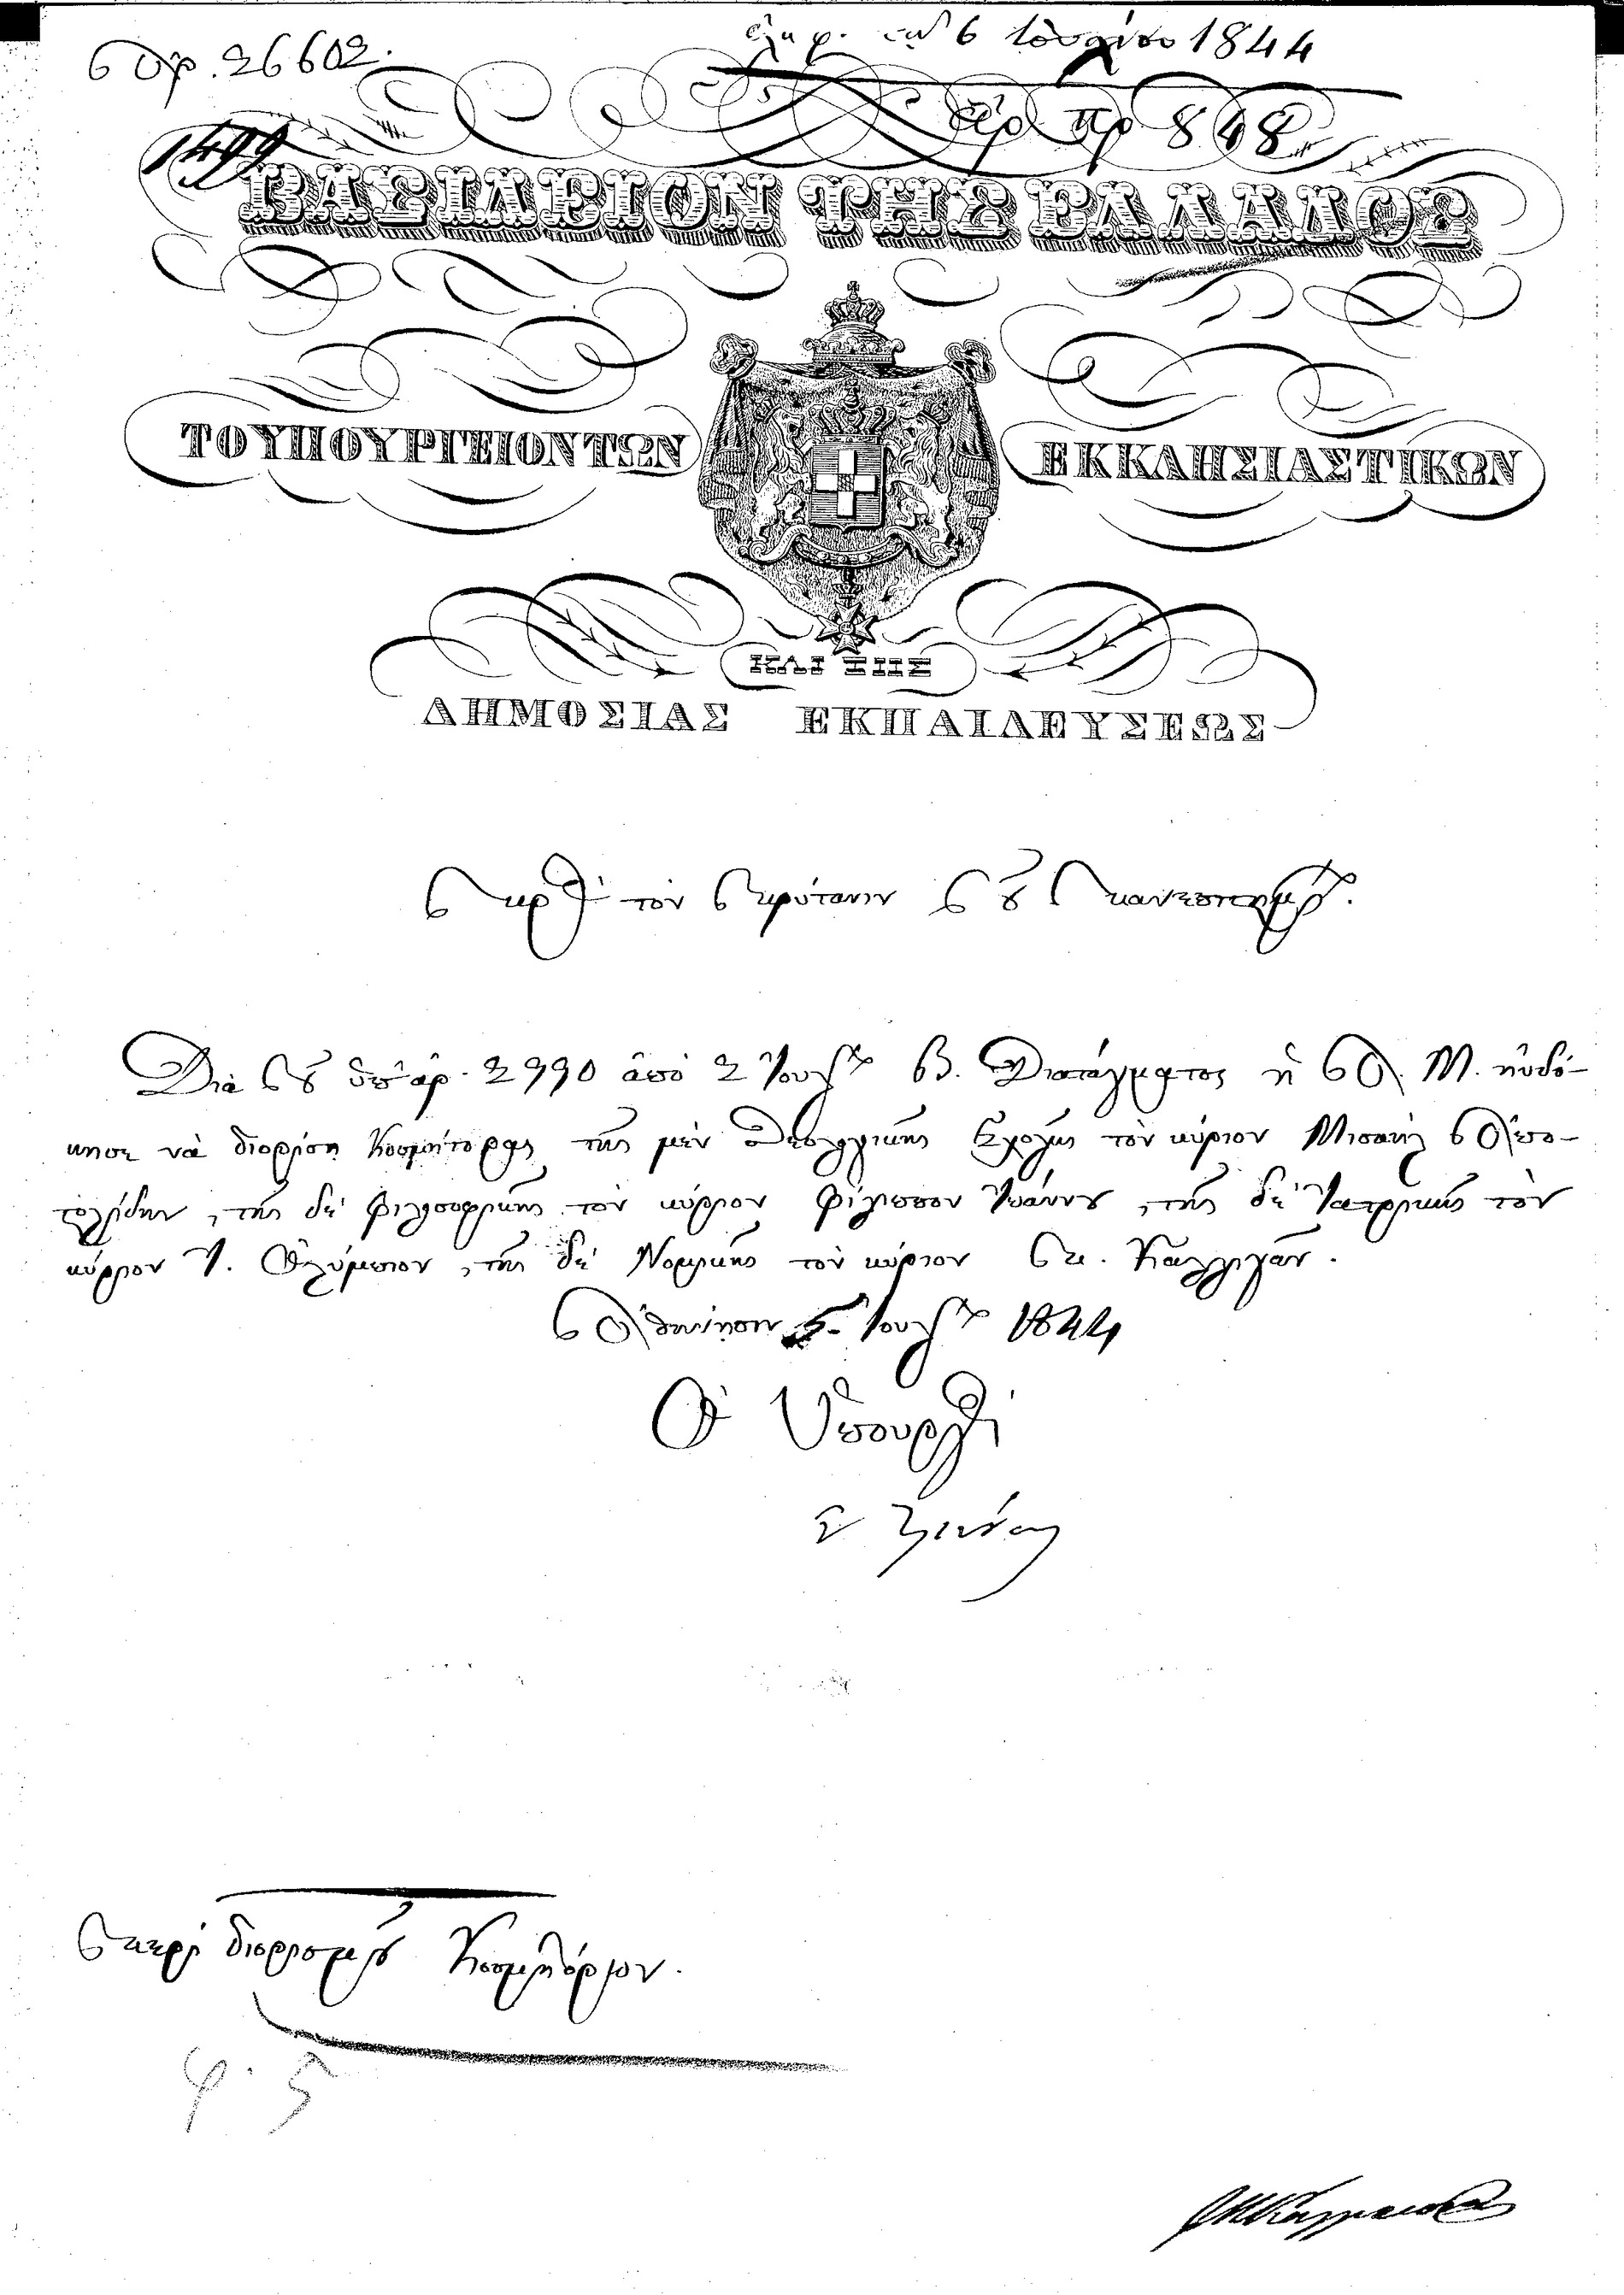 Ἀρ. 26602.
ἐλήφ. τὴν 6 Ἰουνίου 1844
1499
ἀρ. πρ 868
ΒΑΣΙΛΕΙΟΝ ΤΗΣ ΕΛΛΑΔΟΣ
ΤΟ ΥΠΟΥΡΓΕΙΟΝ ΤΩΝ ΕΚΚΛΗΣΙΑΣΤΙΚΩΝ
ΚΑΙ ΤΗΣ
ΔΗΜΟΣΙΑΣ ΕΚΠΑΙΔΕΥΣΕΩΣ
Πρὸς τὸν Πρύτανιν τοῦ Πανεπιστημίου.
Διὰ τοῦ ὑπ' ἀρ. 2990 ἀπὸ 2 Ἰουνίου Β. Διατάγματος ἡ Α. Μ. ηὐδό-
κησε νὰ διορίσῃ Κοσμήτορας τῆς μὲν Θεολογικῆς Σχολῆς τὸν κύριον Μισαὴλ Ἀπο-
στολίδην, τῆς δὲ Φιλοσοφικῆς τὸν κύριον Φίλιππον Ἰωάννου, τῆς δὲ Ἰατρικῆς τὸν
κύριον Ι. Ὀλύμπιον, τῆς δὲ Νομικῆς τὸν κύριον Π. Καλλιγᾶν.
Ἀθήνησιν 5 Ἰουνίου 1844
Ὁ Ὑπουργὸς
Περὶ διορισμοῦ Κοσμητόρων.